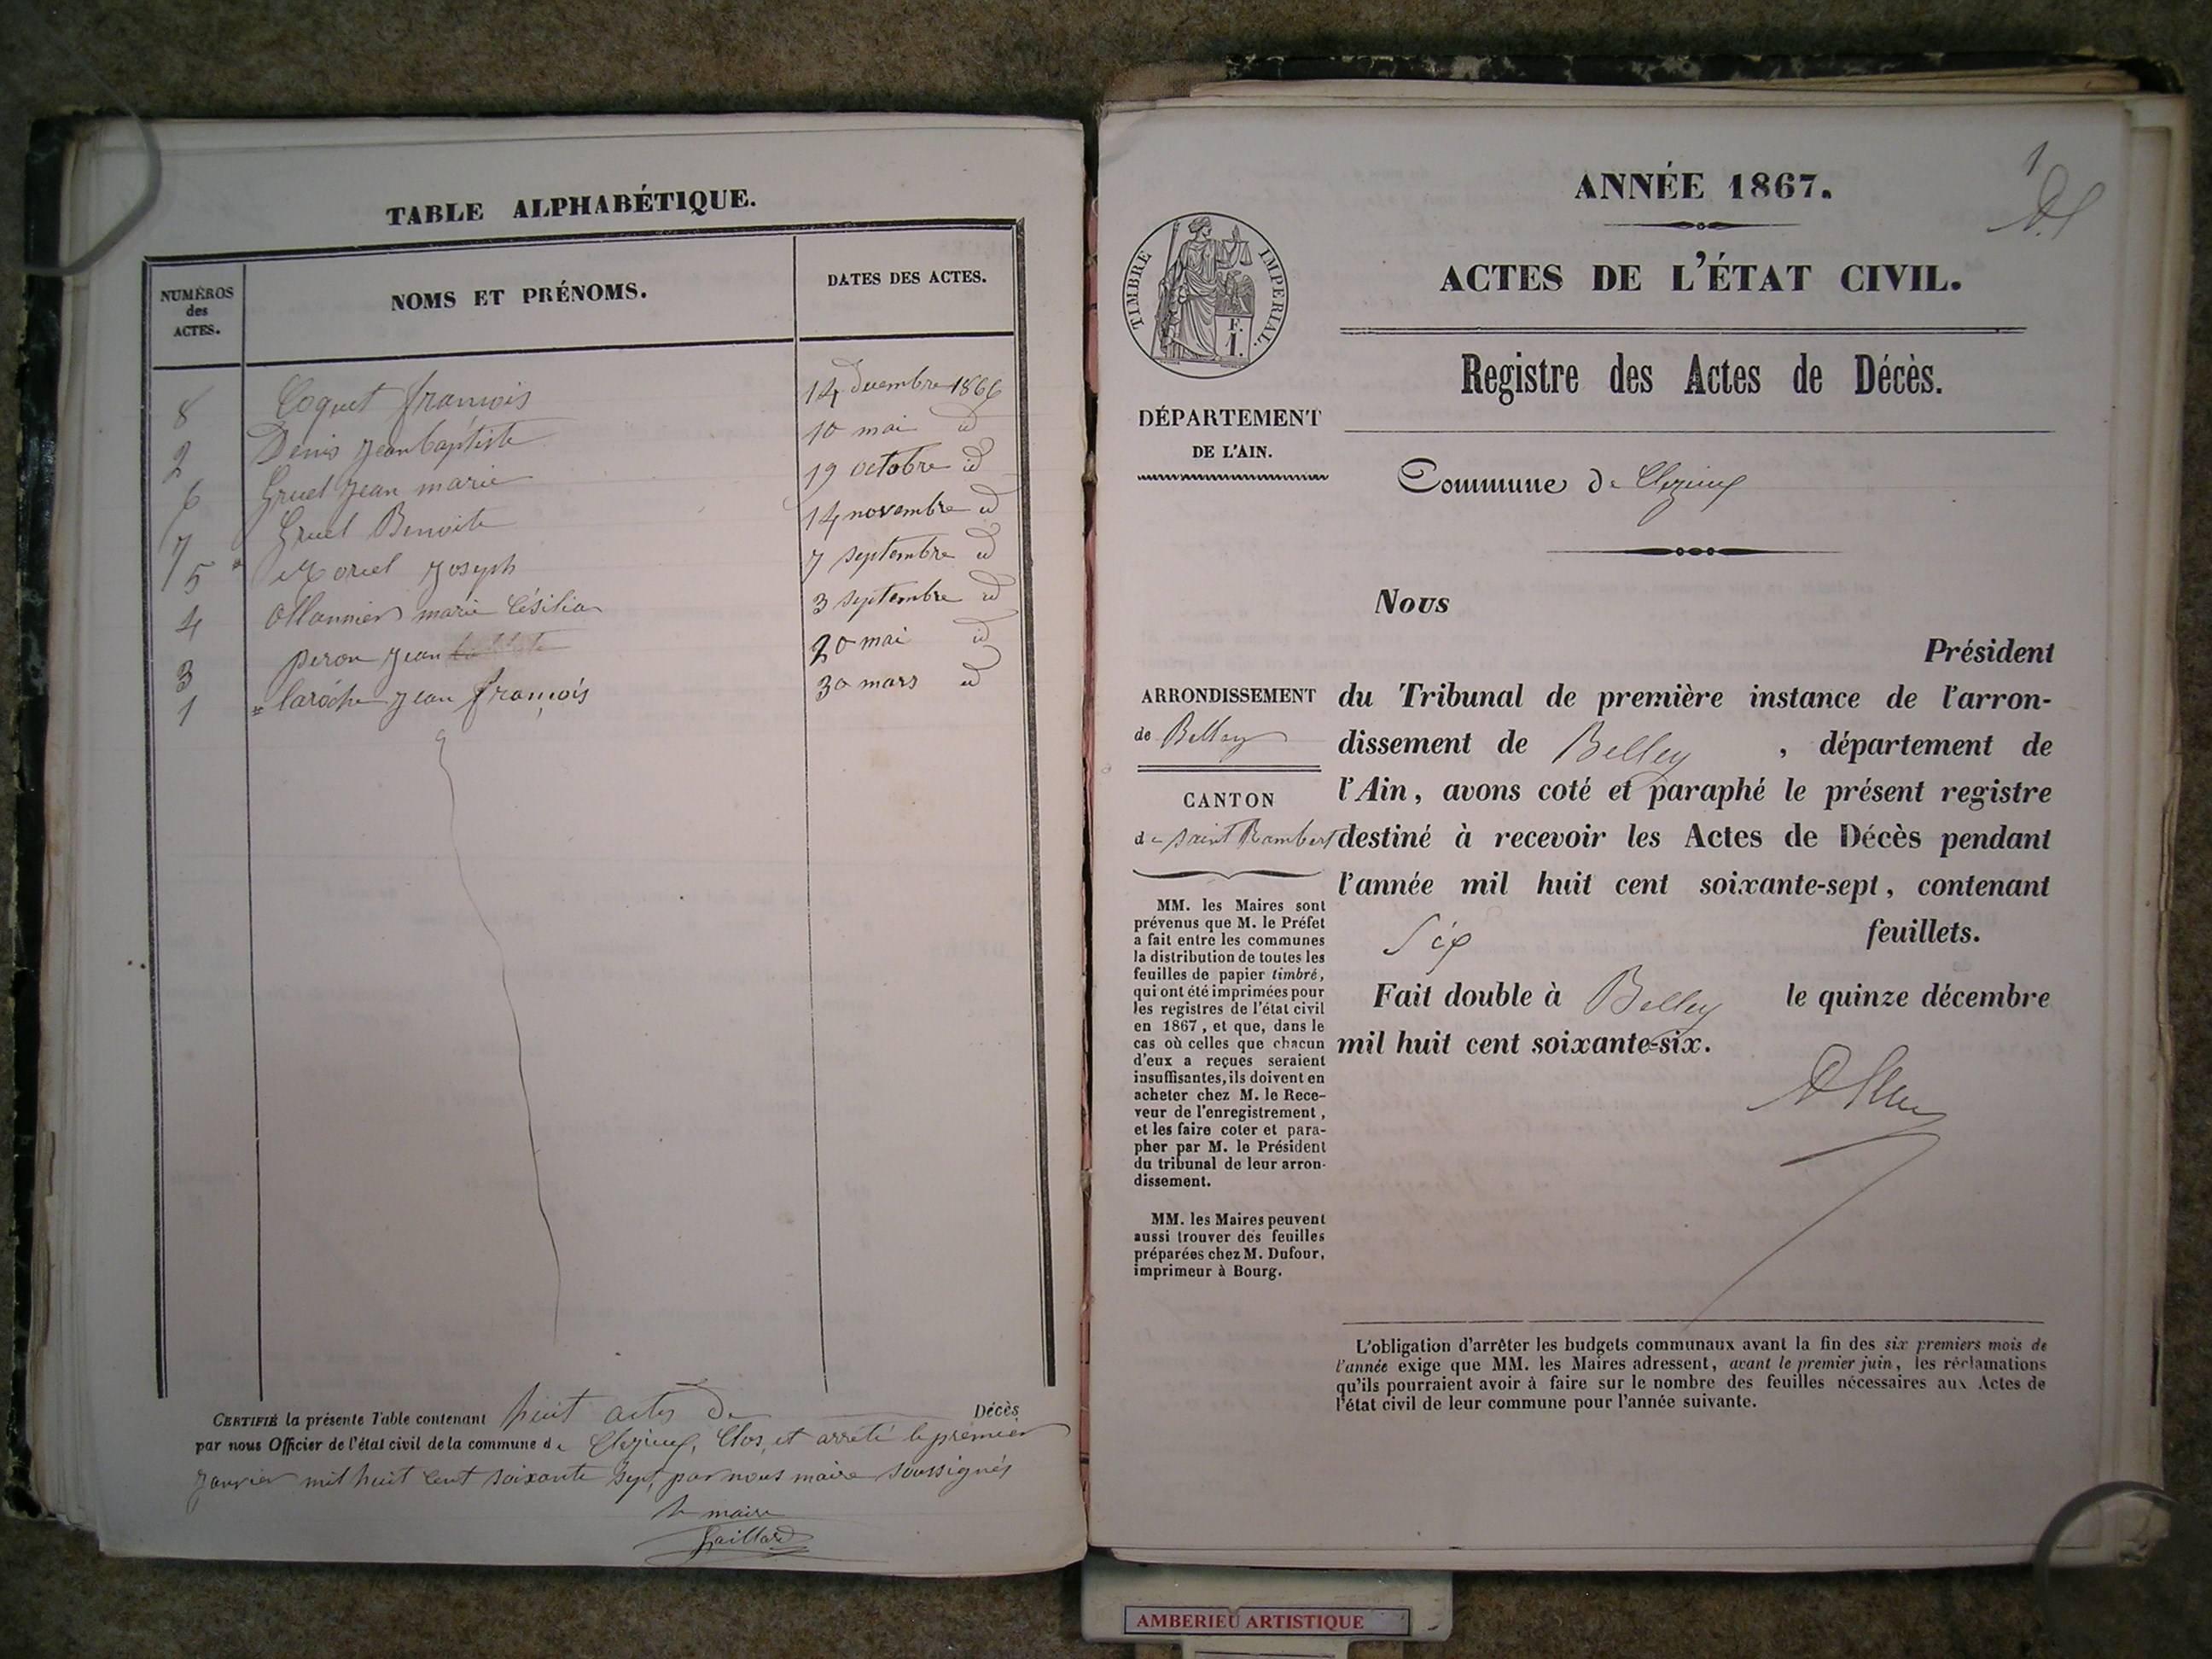 TABLE ALPHABÉTIQUE.
NUMÉROS
des
ACTES.
NOMS ET PRÉNOMS.
DATES DES ACTES.
8 Coquet françois 14 decembre 1866
2 Denis jean baptiste 10 mai id
6 Gruel jean marie 19 octobre id
7 Gruel Benoite 14 novembre id
5 Morel joseph 7 septembre id
4 marie Césilia 3 septembre id
3 peron jean 20 mai id
1 laroche jean françois 30 mars id
CERTIFIÉ la présente Table contenant huit actes de Décès
par nous Officier de l'état civil de la commune de Cleyzieu, Clos, et arrêté le premier
janvier mil huit cent soixante sept, par nous maire soussignés
le maire
Gaillard
1
ANNÉE 1867.
TIMBRE IMPERIAL.
F.
1.
ACTES DE L'ÉTAT CIVIL.
Registre des Actes de Décès.
DÉPARTEMENT
DE L'AIN.
Commune de Cleyzieu
Nous
Président
ARRONDISSEMENT
de Belley
CANTON
de saint Rambert
du Tribunal de première instance de l'arron-
dissement de Belley , département de
l'Ain, avons coté et paraphé le présent registre
destiné à recevoir les Actes de Décès pendant
l'année mil huit cent soixante-sept, contenant
Six feuillets.
Fait double à Belley le quinze décembre
mil huit cent soixante-six.
MM. les Maires sont
prévenus que M. le Préfet
a fait entre les communes
la distribution de toutes les
feuilles de papier timbré,
qui ont été imprimées pour
les registres de l'état civil
en 1867, et que, dans le
cas où celles que chacun
d'eux a reçues seraient
insuffisantes, ils doivent en
acheter chez M. le Rece-
veur de l'enregistrement,
et les faire coter et para-
pher par M. le Président
du tribunal de leur arron-
dissement.
MM. les Maires peuvent
aussi trouver des feuilles
préparées chez M. Dufour,
imprimeur à Bourg.
L'obligation d'arrêter les budgets communaux avant la fin des six premiers mois de
l'année exige que MM. les Maires adressent, avant le premier juin, les réclamations
qu'ils pourraient avoir à faire sur le nombre des feuilles nécessaires aux Actes de
l'état civil de leur commune pour l'année suivante.
AMBERIEU ARTISTIQUE